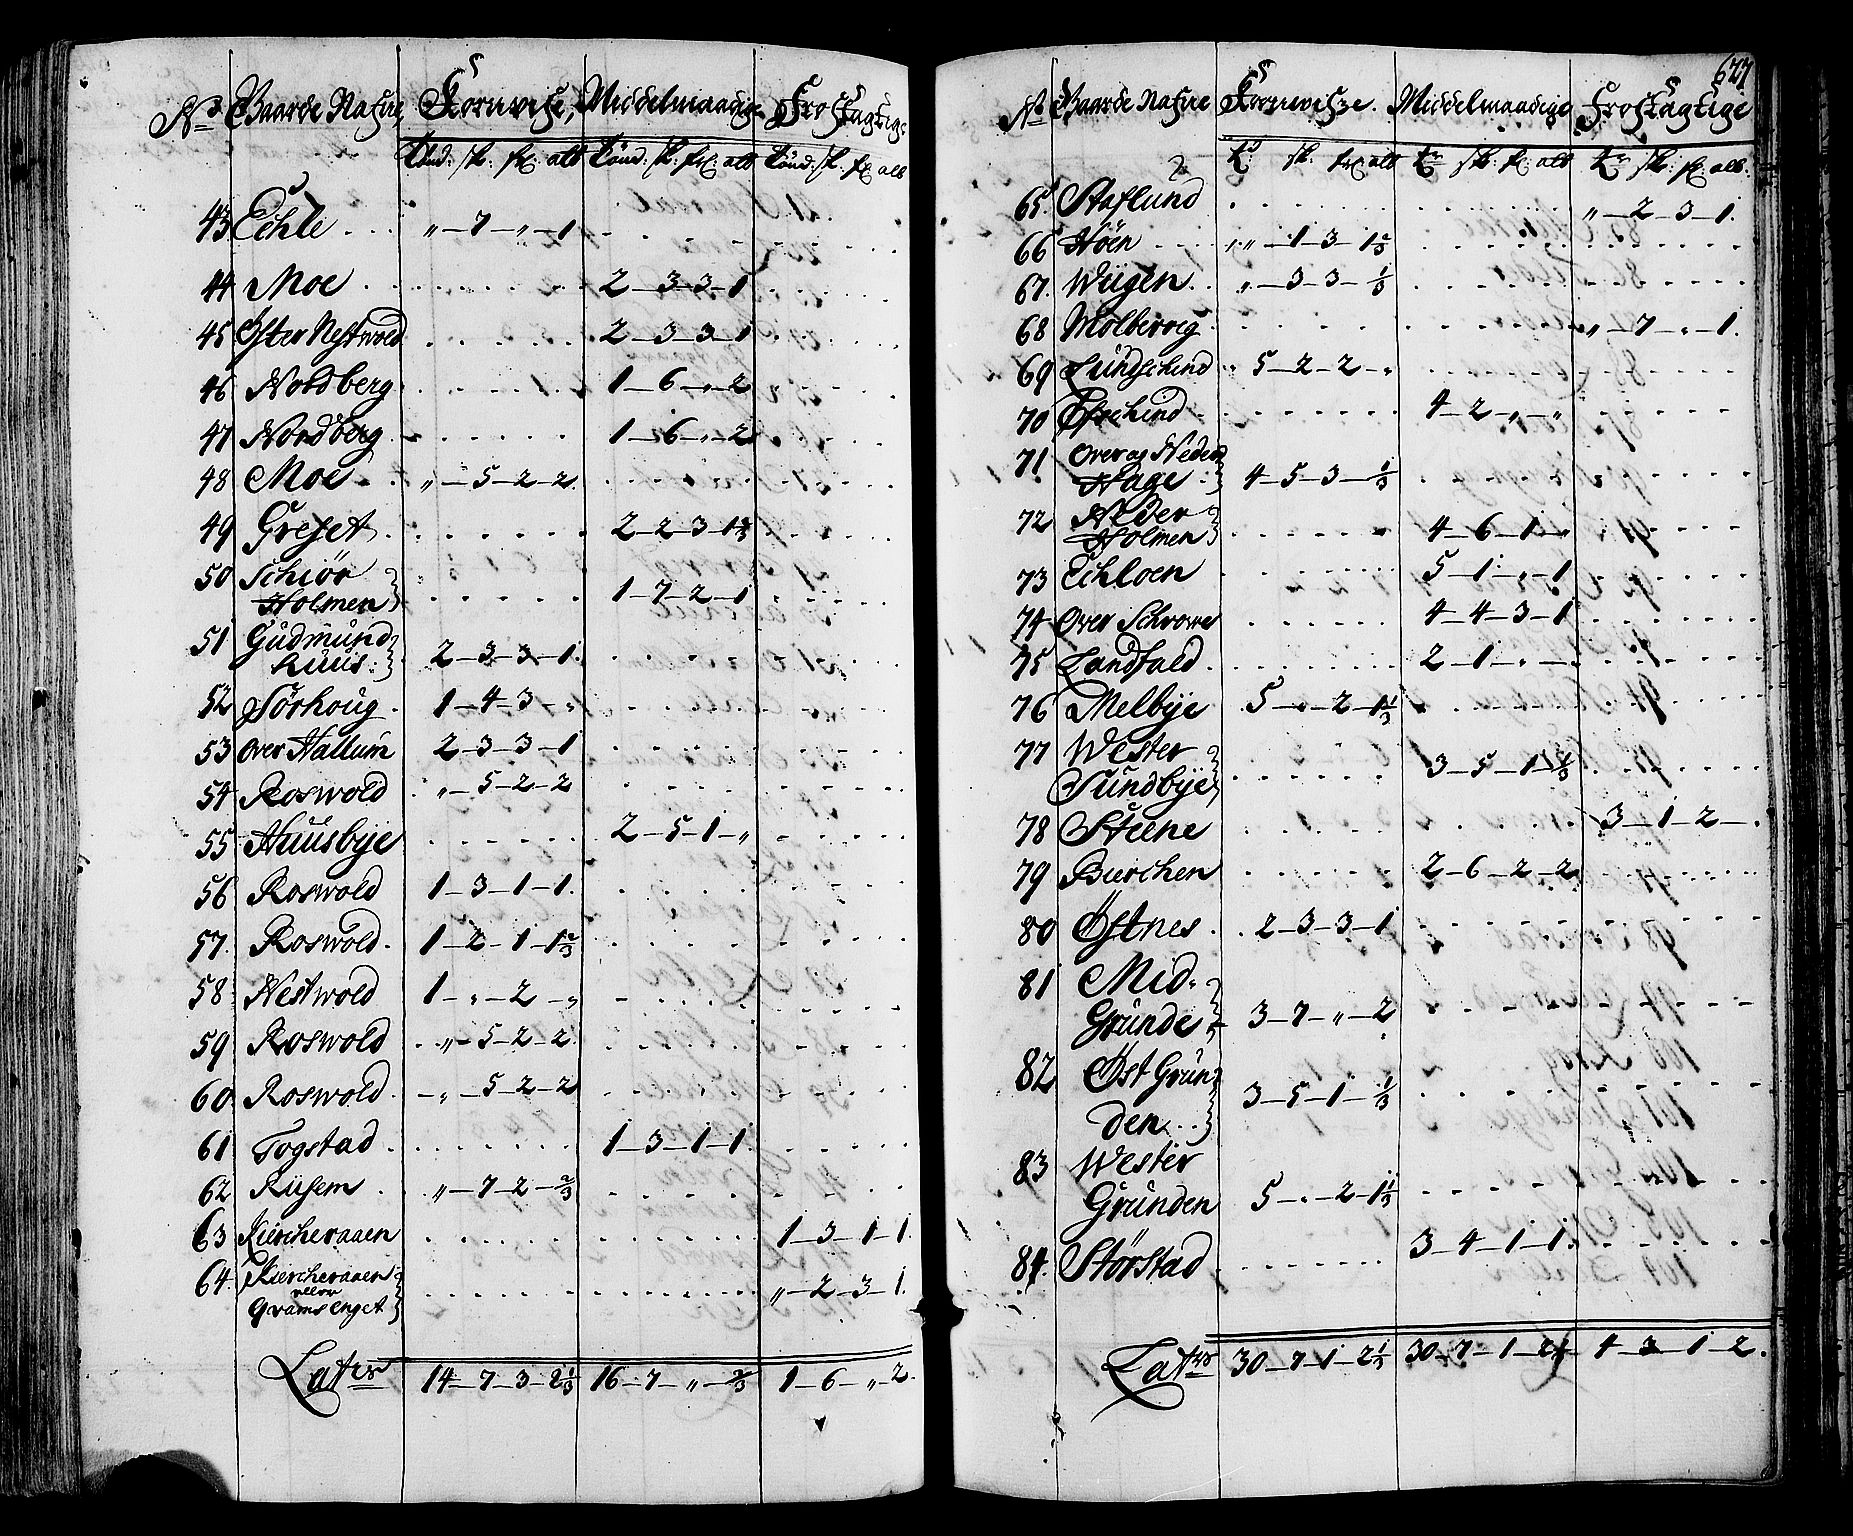 No Gaarde Nafne, Kornvisse, Middelmaadige Frostagtige
Tønd: sk: frl: alb Tønd: sk: frl: alb Tønd: sk: frl alb
43 Echle . . . „ – 7 – „ – 1
44 Moe . . 2 – 3 – 3 – 1
45 Øster Nestwold 2 – 3 – 3 – 1
46 Nordberg 1 – 6 – „ – 2
47 Nordberg 1 – 6 – „ – 2
48 Moe „ – 5 – 2 – 2
49 Greset 2 – 2 – 3 – 1 2/3
50 Schiør
Holmen 1 – 7 – 2 – 1
51 Gudmund
huus: 2 – 3 – 3 – 1
52 Sørhoug 1 – 4 – 3 – „
53 Over Hallum 2 – 3 – 3 – 1
54 Roswold „ – 5 – 2 – 2
55 Huusbye 2 – 5 – 1 – „
56 Roswold 1 – 3 – 1 – 1
57. Roswold. 1 – 2 – 1 – 1 2/3
58 Nestwold 1 – „ – 2 – „
59 Roswold „ – 5 – 2 – 2
60 Roswold – „ – 5 – 2 – 2
61 Togstad 1 – 3 – 1 – 1
62 Riisem „ – 7 – 2 – 2/3
63 Kiercheraaen 1 – 3 – 1 – 1
64. Kiercheraaen
eller
Grams enget „ – 2 – 3 – 1
Later 14 – 7 – 3 – 2 1/3 16 – 7 – „ – 2/3 1 – 6 – „ – 2
627
No Gaarde Nafne Kornvisse. Middelmaadige Frostagtige
Tr sk: frl alb Tr sk: frl: alb Tr sk: frl: alb.
65. Haflund „ – 2 – 3 – 1.
66 Høen „ „ – 1 – 3 – 1 2/3
67. Wiigen „ – 3 – 3 – 1/3
68 Molberoeg „ – 7 – „ – 1.
69 Lundschind 5 – 2 – 2 – „
70 Eschind 4 – 2 – „ – „
71 Over og Neder
Hage 4 – 5 – 3 – 1/3
72 Neder
Holmen 4 – 6 – 1 – „
73 Echloen 5 – 1 – „ – 1
74 Over Schrowe 4 – 4 – 3 – 1
75 Landfald 2 – 1 – „ –
76 Melbye 5 – „ – 2 – 1 1/3
77 Wester
Sundbye 3 – 5 – 1 – 1/3
78 Steene 3 – 1 – 2 – .
79 Bierchen 2 – 6 – 2 – 2
80 Østnes 2 – 3 – 3 – 1
81 Mid-
Grunde 3 – 7 – „ – 2
82 Øst Grun
den 3 – 5 – 1 – 1/3
83 Wester
Grunden 5 – „ – 2 – 1 1/3
84. Størstad 3 – 4 – 1 – 1
Later 30 – 7 – 1 – 2 1/3 30 – 7 – 1 – 2 1/3 4 – 3 – 1 – 2.